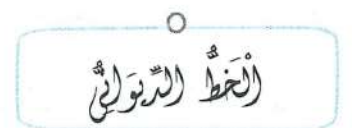 الْخَطُّ الدِّيوَانِيُّ